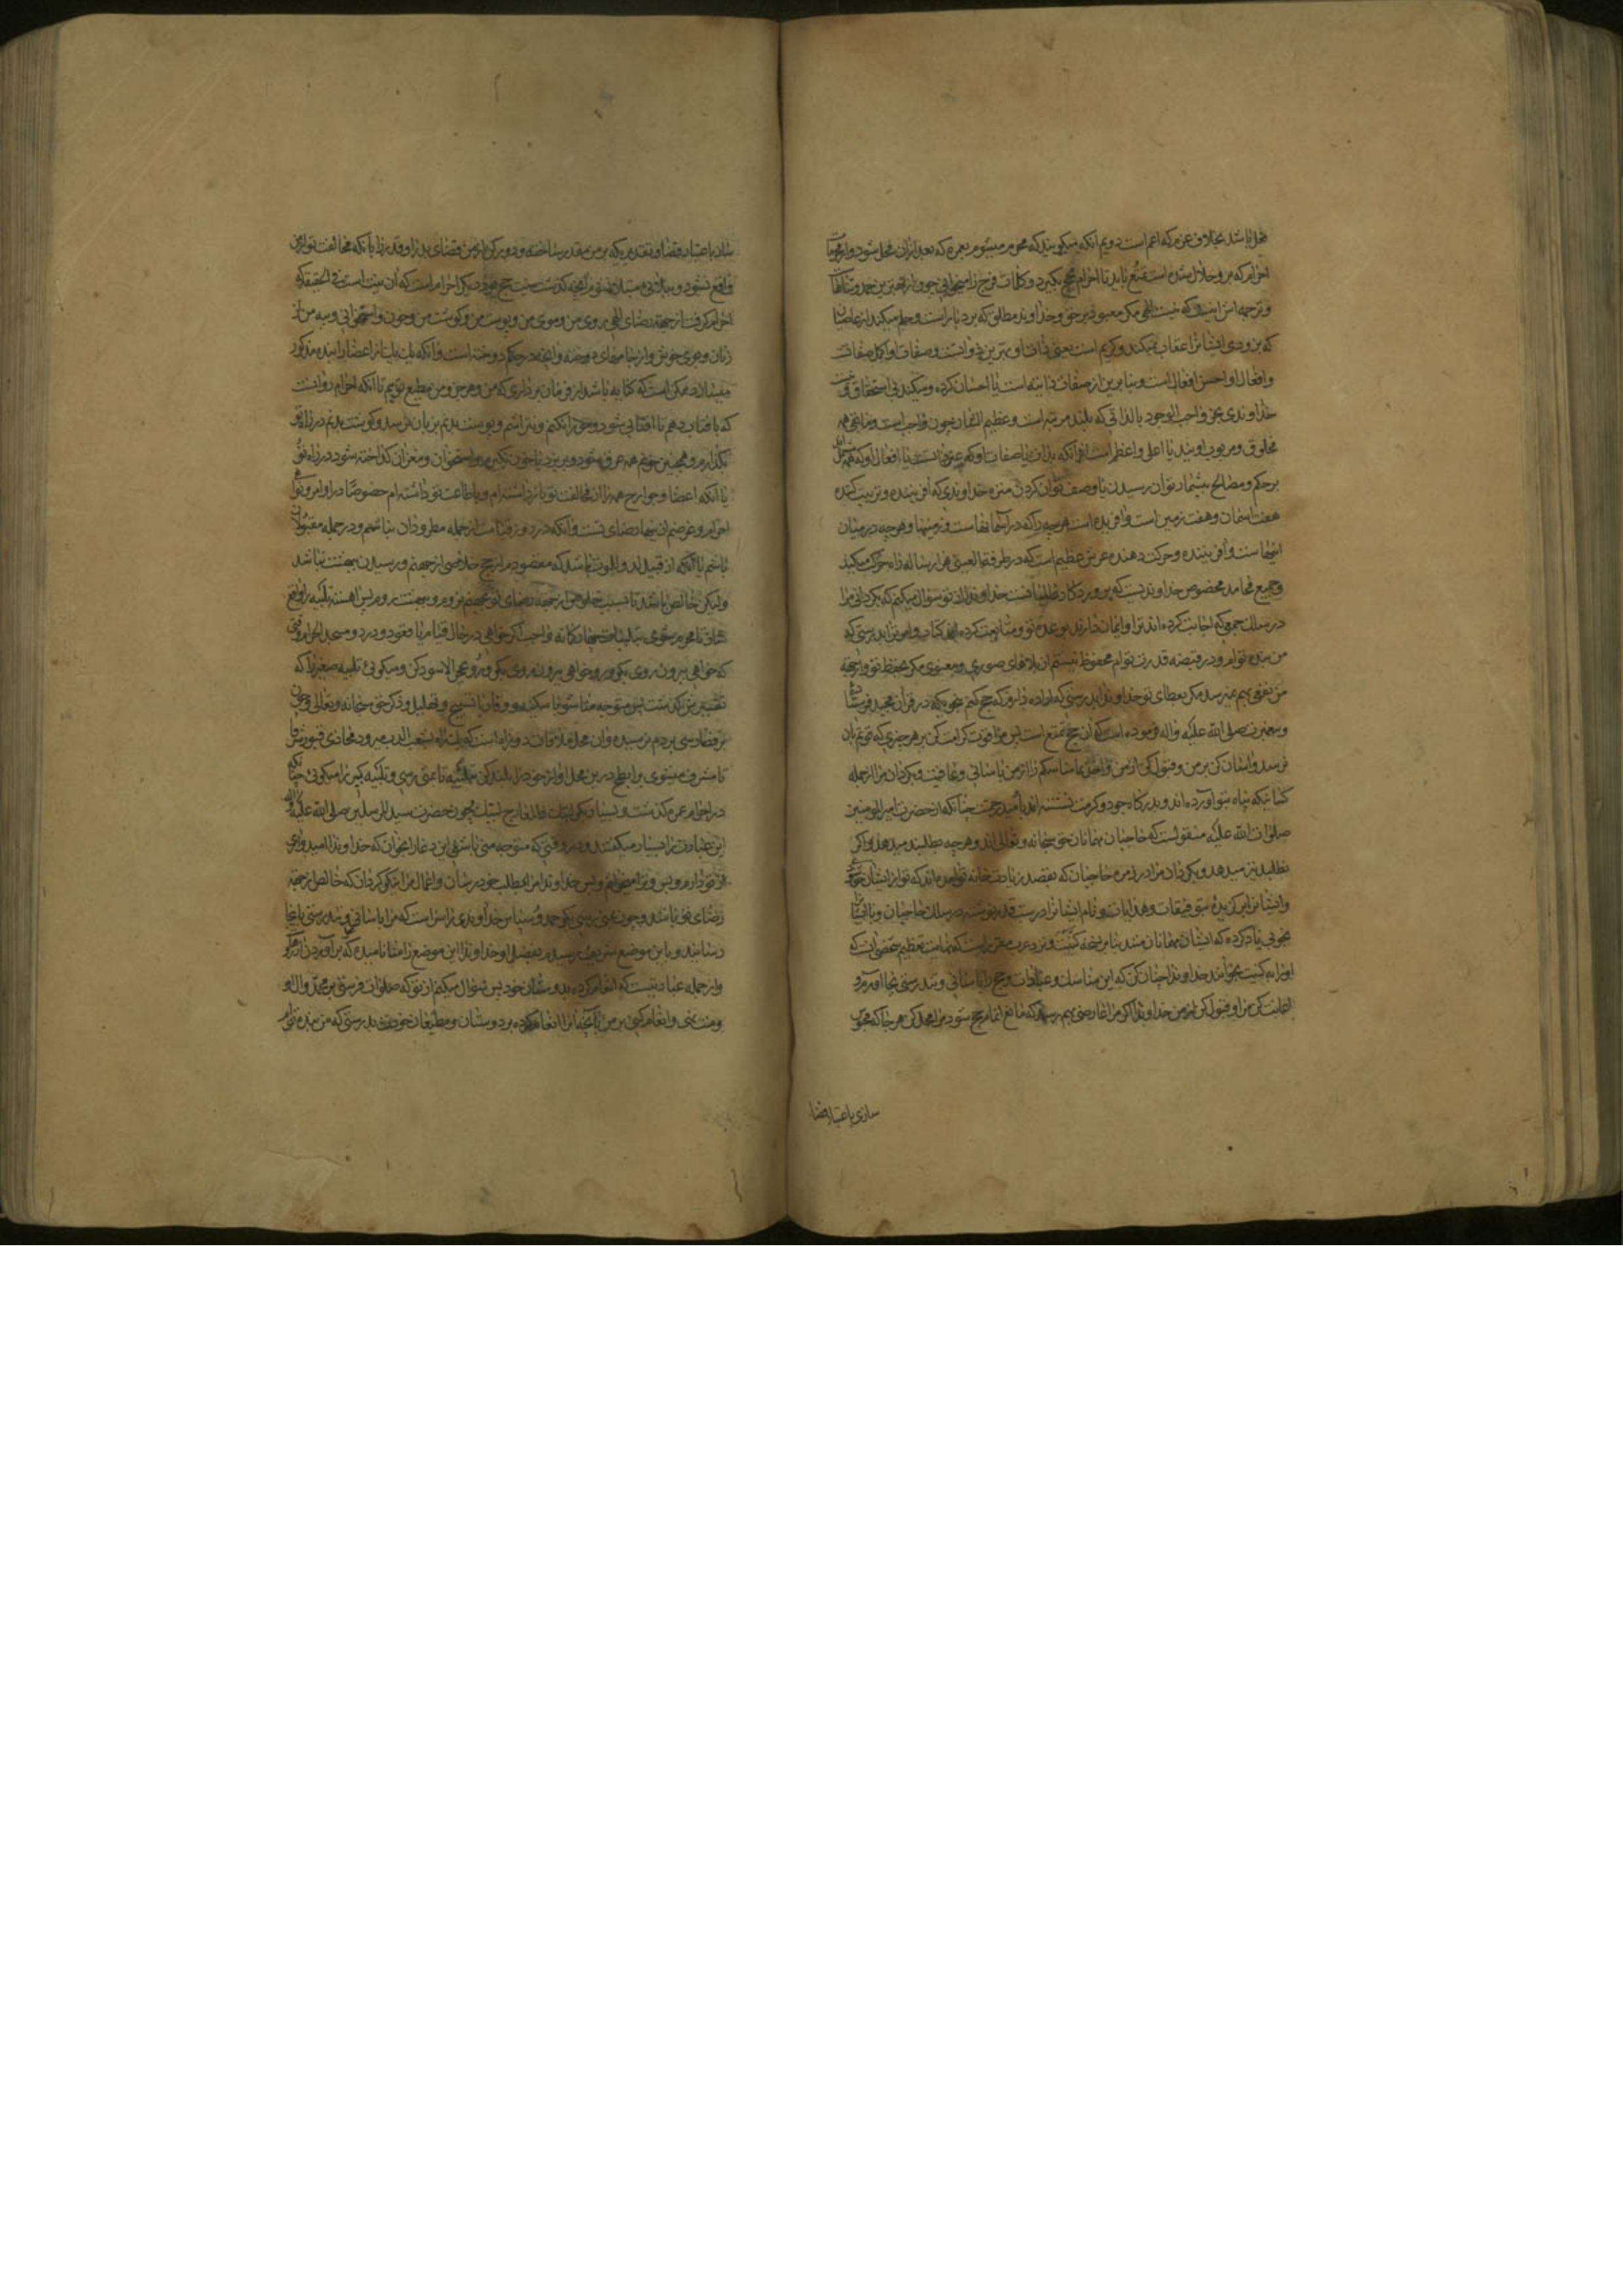 محل باشد بخلاف عمره که اعم است دویم آنکه میگویند که محرم میشوم بعمره که بعد از ان محل شود و از
احرام که برو حلال شده است تمتع یابد تا احرام حج بگیرد و کلمات فرج را میخوانی چون از بهترین حمد و ثناهاست
و ترجمه اش اینست که نیست الهی مگر معبود بر حق و خداوند مطلق که بردبار است و حلم میکند از عاصیان
که بزودی ایشانرا عقاب نمیکند و کریم است یعنی ذات او بهترین ذواتست و صفات او اکمل صفات
و افعال او احسن افعال است و بنابرین از صفات ذاتیه است یا احسان کرده و میکند بی استحقاق و نیست
خداوندی بجز واجب الوجود بالذاتی که بلند مرتبه است و عظیم الشان چون واجب است و مابقی همه
مخلوق و مربوب اویند یا اعلی و اعظم است از آنکه بذات یا صفات او کسی تواند رسید یا افعال او که همه
بر حکم و مصالح بیشمار توان رسیدن یا وصف توان کردن منزه خداوندی که آفریننده و تربیت کننده
هفت آسمان و هفت زمین است و آفریده است هرچه را که در آسمانهاست و زمینها و هرچه در میان
اینهاست و آفریننده و حرکت دهنده عرش عظیم است که در طرفة العینی هزار ساله راه حرکت میکند
و جمیع محامد مخصوص خداوندیست که پروردگار عالمیانست خداوندا از تو سؤال میکنم که بگردانی مرا
در سلک جمعی که اجابت کرده اند ترا و ایمان دارند بوعده تو و متابعت کرده اند کتاب و امر ترا بدرستی که
من بنده توام و در قبضه قدرت توام محفوظ نیستم از بلاهای صوری و معنوی مگر بحفظ تو و آنچه
من نفعی بهم میرسد مگر بعطای تو خداوندا بدرستی که اراده دارم که حج کنم بنحوی که در قرآن مجید فرستاده
و پیغمبرت صلی الله علیه و اله فرموده است که آن حج تمتع است پس مرا قوت کرامت کن بر هر چیزی که قوتم بان
نرسد و آسان کن بر من و قبول کن از من و اخذ نما مناسکم را از من بآسانی و عافیت و بگردان مرا از جمله
کسانیکه پناه بتو آورده اند و بدرگاه جود و کرمت نشسته اند بامید رحمت چنانکه از حضرت امیر المومنین
صلوات الله علیه منقولست که حاجیان مهمانان حق سبحانه و تعالی اند و هرچه بطلبند میدهد و اگر
نطلبند نیز میدهد و بگردان مرا در زمره حاجیان که بقصد زیارت خانه تو آمده اند که تو از ایشان خوشنودی
و ایشانرا برگزیده بتوفیقات و هدایات و نام ایشانرا درست قدر نوشته در سلک حاجیان و ایشانرا
بخوبی یاد کرده که ایشان مهمانان منند بنابر نسخه کنیت و نزد عرب مقرر است که نهایت تعظیم شخصی آنست که
او را بکنیت بخوانند خداوندا چنان کن که این مناسک و عبادات و حج را بآسانی و تندرستی بجا آورم و
اعانت کن مرا و قبول کن از من خداوندا اگر مرا عارضه بهم رسد که مانع اتمام حج شود مرا محل کن هرجا که محبوس
سازی باعتبار قضا
سازی باعتبار قضا و تقدیری که بر من مقدر ساخته و دور کن از من قضای بد را و قدر را یا آنکه مخالفت تو از من
واقع نشود و ببلائی مبتلا نشوم
احرام گرفت از جهة رضای الهی روی من و موی من و پوست من و گوشت من و خون و استخوانی و پیه من از
زنان و بوی خوش و از جامهای دوخته و آنچه در حکم دوخته است و آنکه یک یک از اعضا را بنده مذکور
میسازد ممکن است که کنایه باشد از فرمان برداری که من و هر جزو من مطیع توییم تا آنکه احرام رو آنست
که بآفتاب دهم تا آفتابی شود و مو را نکنم و نتراشم و پوست بدنم بزیان رسد و گوشت بدنم در راه تو
بگدازم و همچنین خونم همه عرق شود و بریزد یا خون نگیرم و استخوان و مغز آن گداخته شود در راه تو
یا آنکه اعضا و جوارح همه را از مخالفت تو باز داشته ام و باطاعت تو داشته ام خصوصا در اوامر و نواهی
احرام و غرضم از اینها رضای تست و آنکه در روز قیامت از جمله مطرودان نباشم و در جمله مقبولان
باشم یا آنکه از قبیل لدوا للموت باشد که مقصودم از حج خلاصی از جهنم و رسیدن ببهشت نباشد
ولیکن خالص باشد تا بسبب خلوص از جهة رضای تو بجهنم نروم و ببهشت روم پس آهسته تلبیه را واقع
سازی تا محرم شوی بتلبیات چهارگانه واجب اگر خواهی در حال قیام یا قعود و در در مسجد الحرام وقتی
که خواهی بیرون روی بگو و رو خواهی بیرون روی بگو و رو بحجر الاسود کن و میگوئی تلبیه صغیر را که
تفسیرش گذشت پس متوجه منا شو با سکینه و وقار با تسبیح و تهلیل و ذکر حق سبحانه و تعالی و چون
برقضا رسی بردم نرسیده و آن محل ملاقات دو راه است که یک راه بشعب الدب میرود محاذی قبور شرفا
تا مشرف میشوی بر ابطح درین محل آواز خود را بلند کن بتلبیه تا بمنی رسی و تلبیه کبیر را میگوئی چنانکه
در احرام عمره گذشت و بسیار بگو لبیک ذا المعارج لبیک چون حضرت سید المرسلین صلی الله علیه و اله
این عبارت را بسیار میگفتند و در وقتی که متوجه منی باشی این دعا را بخوان که خداوندا امیدواری
از تو دارم و بس و ترا میخوانم و بس خداوندا مرا بمطلب خود رسان و اعمال مرا نیکو گردان که خالص از جهة
رضای تو باشد و چون بمنی رسی بگو حمد و سپاس خداوندی را سزاست که مرا بآسانی و تندرستی باینجا
رسانید و باین موضع شریف رسیدم بفضل او خداوندا این موضع را منا نامیده که برآورده آرزو
و از جمله عباداتیست که انعام کرده بدوستان خود پس سؤال میکنم از تو که صلوات فرستی بر محمد و ال او
و منت نهی و انعام کنی بر من بآنچه بانها انعام کرده بر دوستان و مطیعان خودت بدرستی که من بنده توام